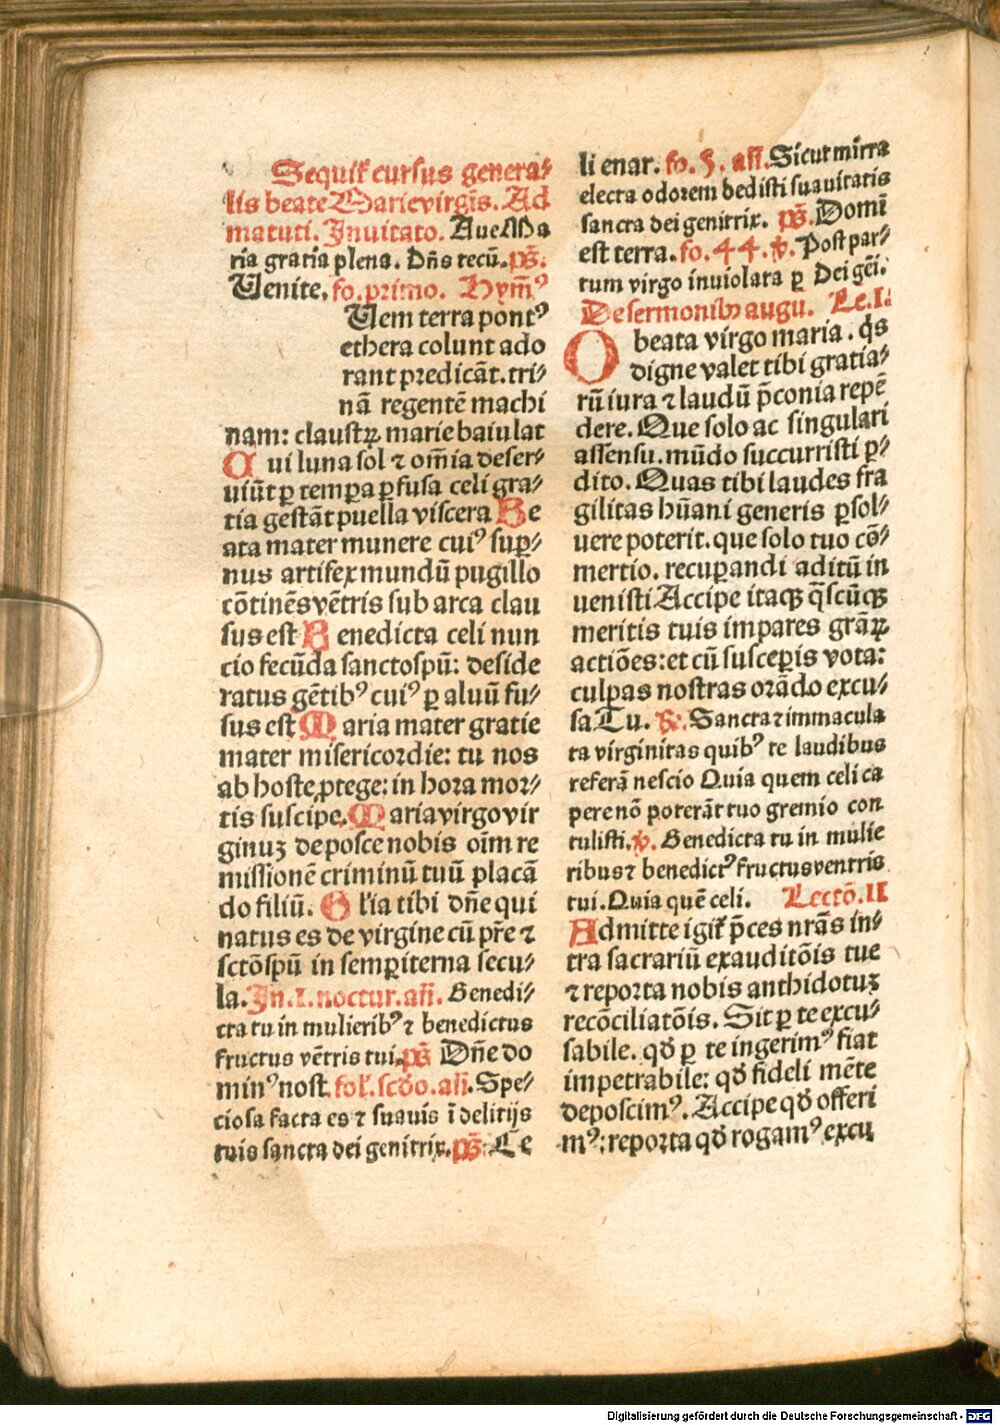 Sequit᷑ cursus genera⸗
lis beate Marie virgīs. Ad
matuti. Inuitato. Aue Ma
ria gratia plena. Dn̄s tecū. ps̄.
Uenite. fo. primo. Hym̄ꝰ
Uem terra pontꝰ
ethera colunt ado
rant predicāt. tri⸗
nā regentē machi
nam: claustꝝ marie baiulat
C ui luna sol ⁊ om̄ia deser⸗
uiūt ꝑ tempa ꝑfusa celi gra⸗
tia gestāt puella viscera Be
ata mater munere cuiꝰ suꝑ⸗
nus artifex mundū pugillo
cōtinēs vētris sub arca clau
sus est B enedicta celi nun
cio fecūda sanctospū: deside
ratus gētibꝰ cuiꝰ ꝑ aluū fu⸗
sus est M aria mater gratie
mater misericordie: tu nos
ab hoste ꝓtege: in hora mor⸗
tis suscipe. M aria virgo vir
ginuꝫ deposce nobis oīm re
missionē criminū tuū placā
do filiū. G l'ia tibi dn̄e qui
natus es de virgine cū pr̄e ⁊
sctōspū in sempiterna secu⸗
la. In .I. noctur. an̄. Benedi⸗
cta tu in mulieribꝰ ⁊ benedictus
fructus vētris tui. ps̄ Dn̄e do
minꝰ nost. fol'. scd̄o. an̄. Spe⸗
ciosa facta es ⁊ suauis ī delitijs
tuis sancta dei genitrix. ps̄. Ce
li enar. fo. 5. an̄. Sicut mirra
electa odorem dedisti suauitatis
sancta dei genitrix. ps̄. Domī
est terra. fo. 44. ℣. Post par⸗
tum virgo inuiolata ꝑ Dei gēi.
De sermonibꝰ augu. Le. I.
O beata virgo maria. qs̄
digne valet tibi gratia⸗
rū iura ⁊ laudū p̄conia repē
dere. Que solo ac singulari
assensu. mūdo succurristi ꝑ⸗
dito. Quas tibi laudes fra
gilitas hūani generis ꝑsol⸗
uere poterit. que solo tuo cō⸗
mertio. recuꝑandi aditū in
uenisti Accipe itaqꝫ q̄scūqꝫ
meritis tuis impares grāꝝ
actiōes: et cū susceꝑis vota:
culpas nostras orādo excu⸗
sa Tu. ℟. Sancta ⁊ immacula
ta virginitas quibꝰ te laudibus
referā nescio Quia quem celi ca
pere nō poterāt tuo gremio con
tulisti. ℣. Benedicta tu in mulie
ribus ⁊ benedictꝰ fructus ventris
tui. Quia quē celi. Lectō. II
Admitte igit᷑ p̄ces nrās in⸗
tra sacrariū exauditōis tue
⁊ reporta nobis anthidotuꝫ
recōciliatōis. Sit ꝑ te excu⸗
sabile. qd̄ ꝑ te ingerimꝰ fiat
impetrabile: qd̄ fideli mēte
deposcimꝰ. Accipe qd̄ offeri
mꝰ: reporta qd̄ rogamꝰ excu
Digitalisierung gefördert durch die Deutsche Forschungsgemeinschaft - DFG